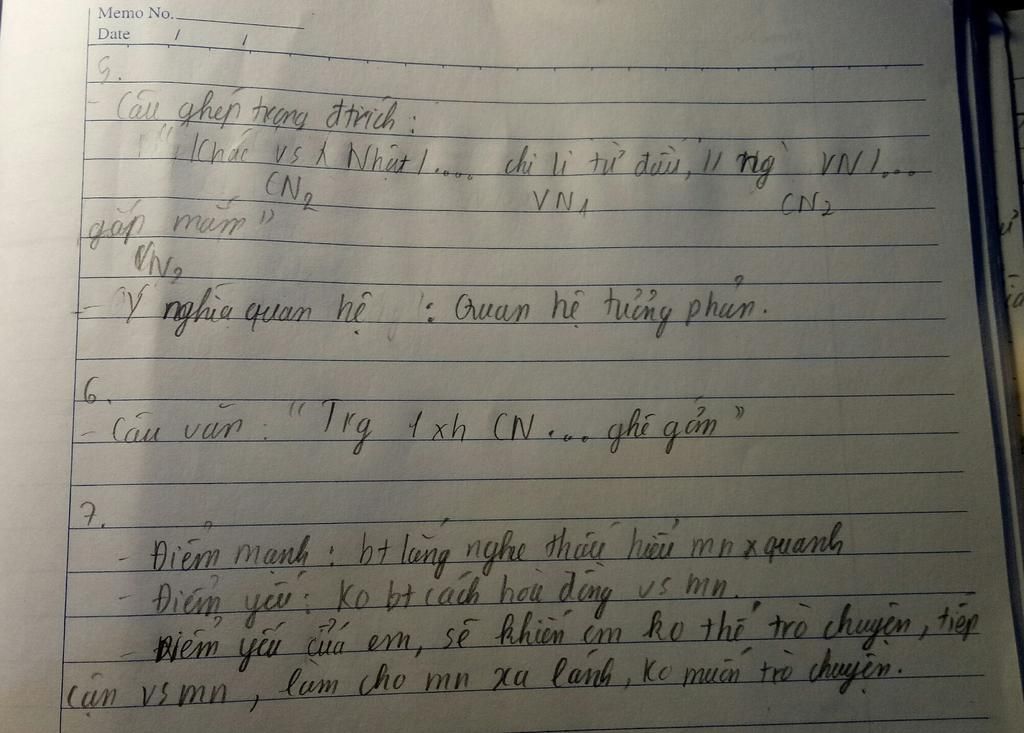 Memo No.
Date / /
5.
- Câu ghép trong đtrích:
" Khác vs x Nhật/.... chi li từ đầu, // ng` VN/...
CN2 VN1 CN2
gắp mắm"
VN2
- Ý nghĩa quan hệ : Quan hệ tưởng phản.
6.
- Câu văn: "Trg 1 xh CN.... ghê gớm"
7.
- Điểm mạnh: bt lắng nghe thấu hiểu mn x quanh
- Điểm yếu: Ko bt cách hoà đồng vs mn.
- Điểm yếu của em, sẽ khiến em ko thể trò chuyện, tiếp
cận vs mn, làm cho mn xa lánh, ko muốn trò chuyện.